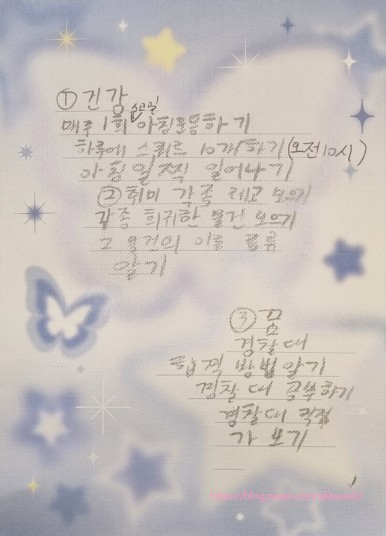 ① 건강
수요일
매주 1회 아침운동하기
하루에 스쿼트 10개하기(오전10시)
아침일찍 일어나기
② 취미 각종 레고 모으기
각종 희귀한 물건 모으기
그 물건의 이름 종류
알기
③ 꿈
경찰대
합격 방법알기
경찰대 공부하기
경찰대 직접
가 보기